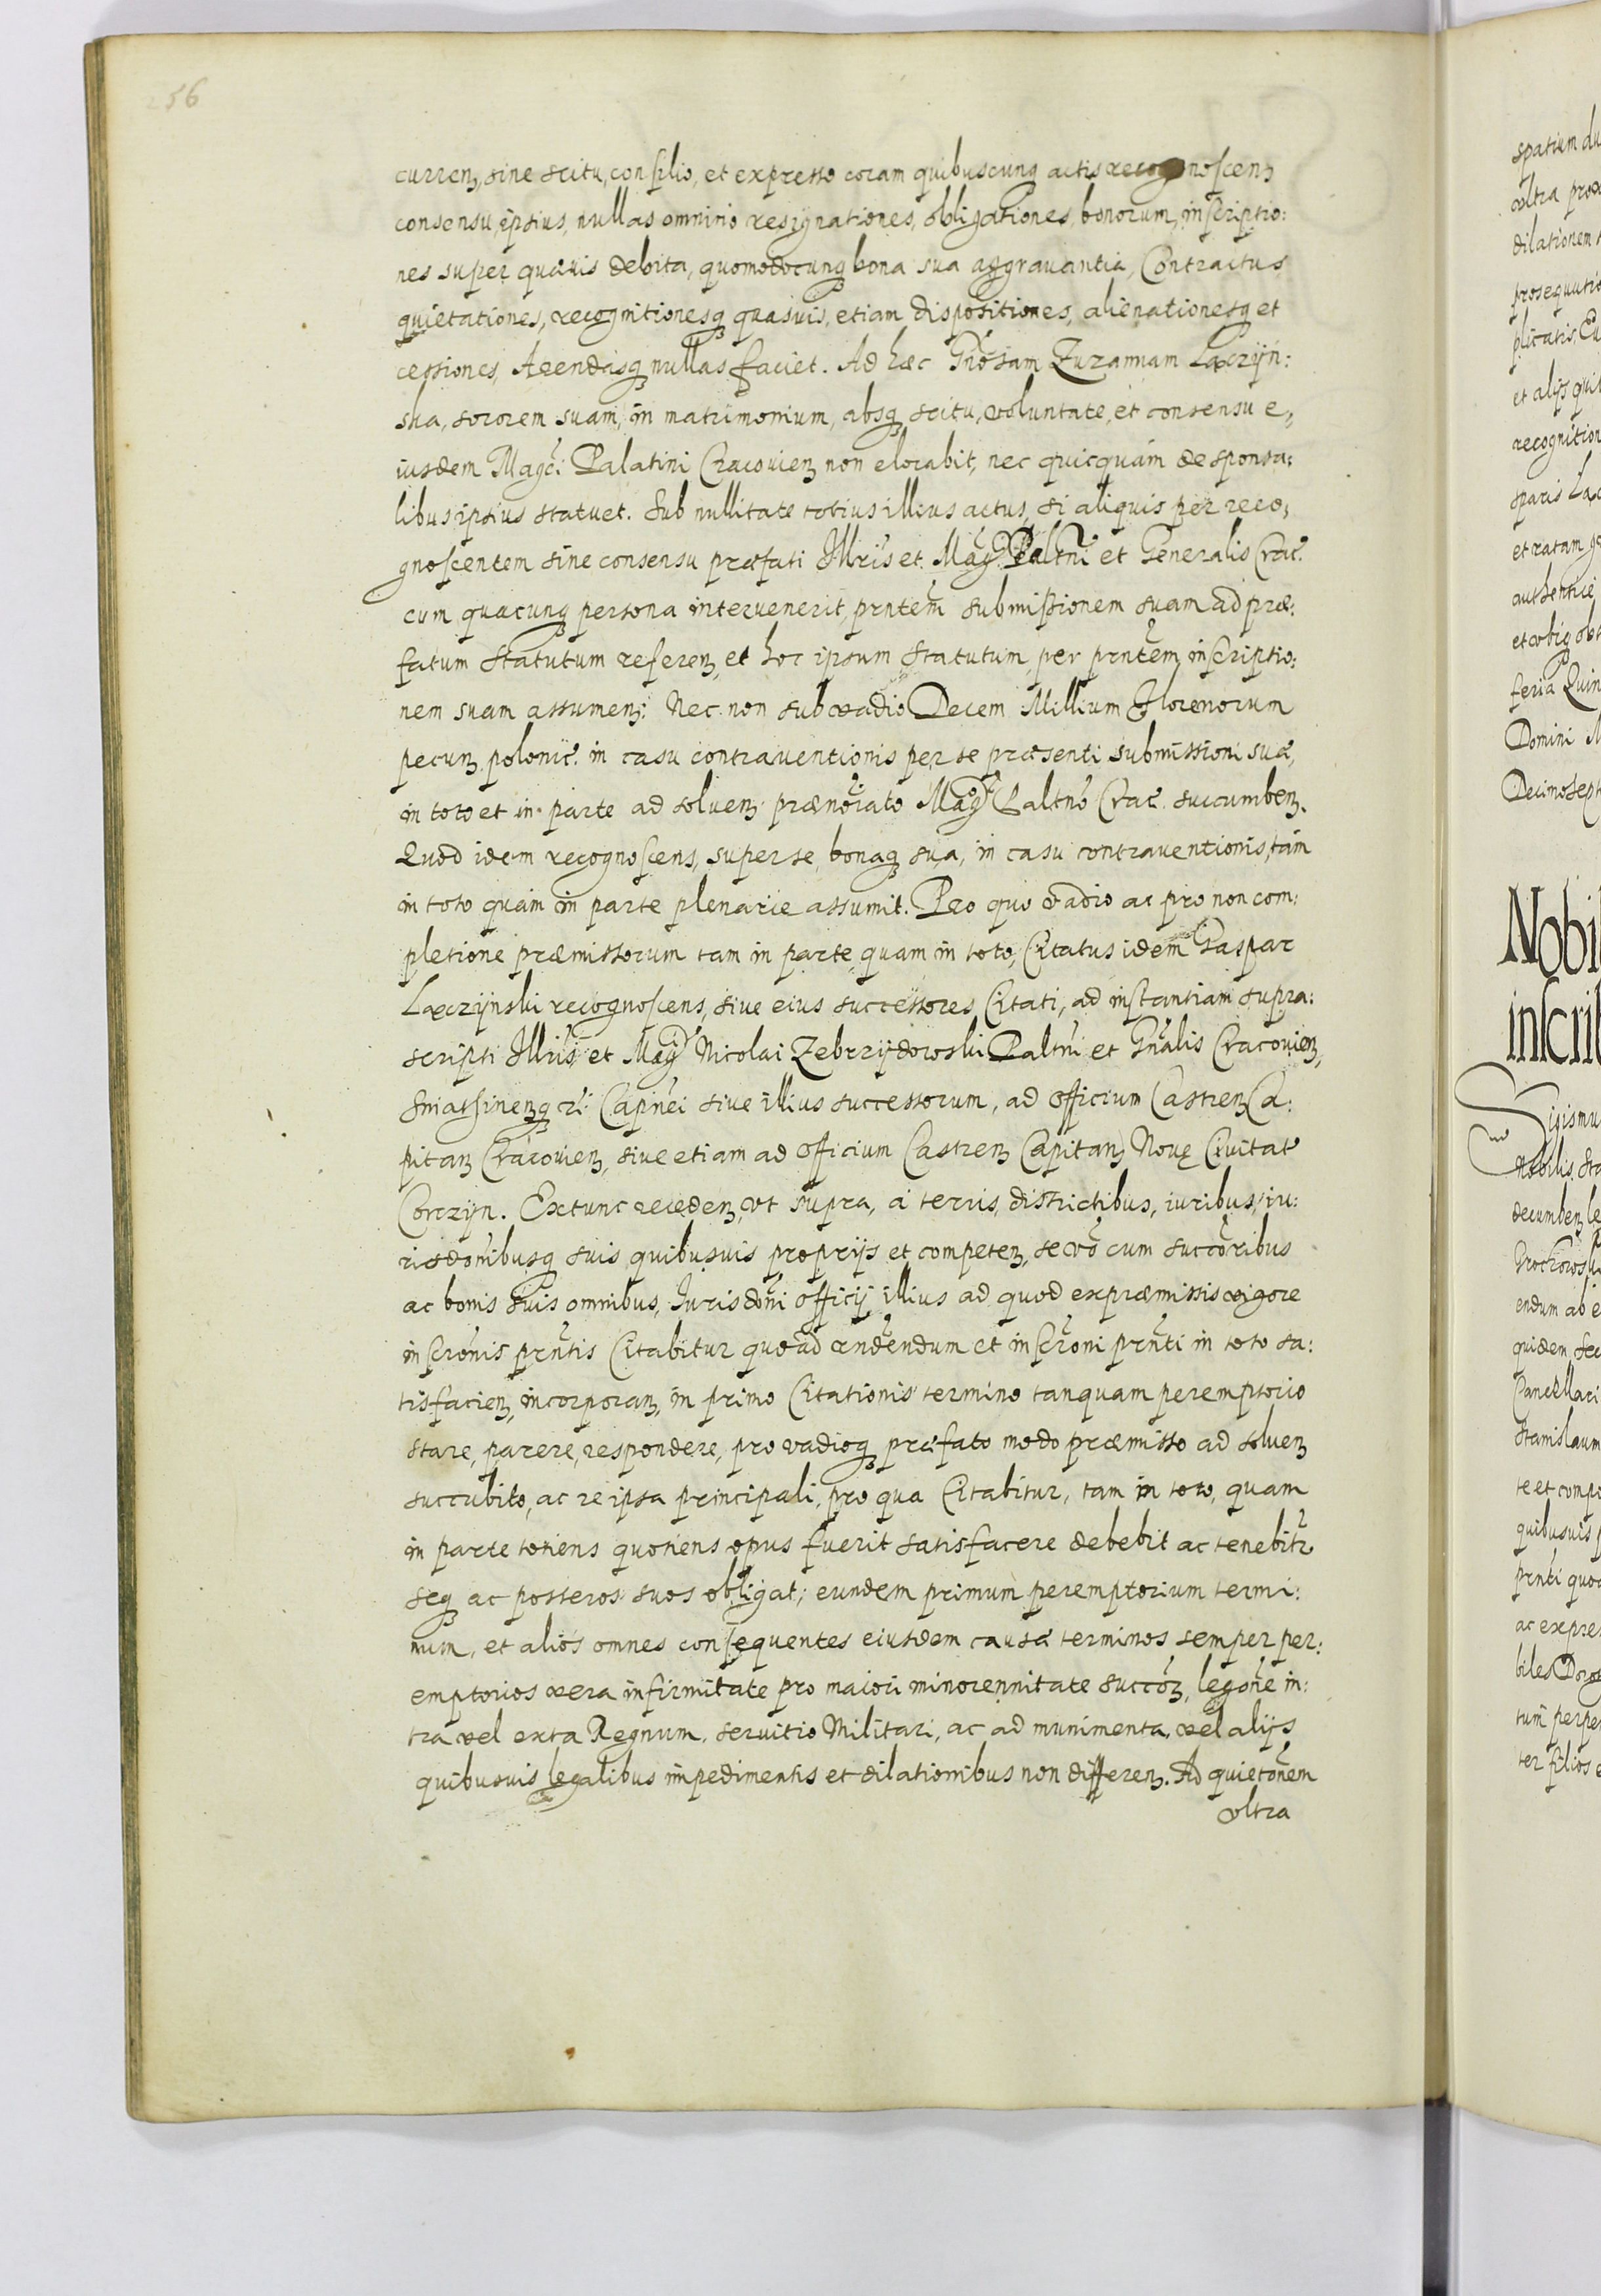 256
curren, sine scitu, consilio, et expresso coram quibuscunq actis recognoscen
consensu ipsius, nullas omnino resignationes, obligationes bonorum, inscriptio:
nes super quævis debita, quomodocunq bona sua aggravantia, Contractus,
quietationes, recognitionesq quasvis, etiam dispositiones, alienationesq et
cessiones, Arendasq nullas faciet. Ad hæc Gnosam Zuzannam Laczÿn:
ska, sororem suam, in matrimonium, absq scitu, voluntate, et consensu e,,
iusdem Magci Palatini Cracovien non elocabit, nec quicquam de sponsa:
libus ipsius statuet. Sub nullitate totius illius actus, si aliquis per reco,
gnoscentem sine consensu præfati Illris et Magci Paltni et Generalis Crac.
cum quacunq persona intervenerit, prntem submissionem suam ad præ:
fatum Statutum referen, et hoc ipsum Statutum, per prntem inscriptio:
nem suam assumen: Nec non sub vadio Decem Millium Florenorum
pecun polonic. in casu contraventionis per se præsenti submissioni suæ,
in toto et in parte ad soluen prænoiato Magco Paltno Crac. succumben.
Quod idem recognoscens, super se, bonaq sua, in casu contraventionis, tam
in toto quam in parte plenarie assumit. Pro quo vadio ac pro non com:
pletione præmissorum tam in parte, quam in toto, Citatus idem Gaspar
Laczÿnski recognoscens, sive eius successores Citati, ad instantiam supra:
scripti Illris et Magci Nicolai Zebrzÿdowski Paltni et Gnalis Cracovien,
Sniatinenq Capnei sive illius successorum, ad officium Castren Ca:
pitan Cracovien, sive etiam ad officium Castren Capitan Novę Civitat
Corczÿn. Extunc receden, vt supra, a terris, districtibus, iuribus, iu:
risdonibusq suis quibusvis proprÿs et competen, se vo cum succoribus
ac bonis suis omnibus, Jurisdoni officÿ illius ad quod ex præmissis vigore
inscronis prntis Citabitur quoad rndendum et inscroni prnti in toto sa:
tisfacien, incorporan, in primo Citationis termino tanquam peremptorio
stare, parere, respondere, pro vadioq præfato modo præmisso ad soluen
succubito, ac re ipsa principali, pro qua Citabitur, tam in toto, quam
in parte totiens quotiens opus fuerit satisfacere debebit ac tenebitr
seq ac posteros suos obligat; eundem primum peremptorium termi:
num, et alios omnes consequentes eiusdem causæ terminos semper per:
emptorios vera infirmitate pro maiori minorennitate succo, legone in:
tra vel exta Regnum, servitio Militari, ac ad munimenta, vel alÿs
quibusvis legalibus impedimentis et dilationibus non differen. Ad quietonem
vltra